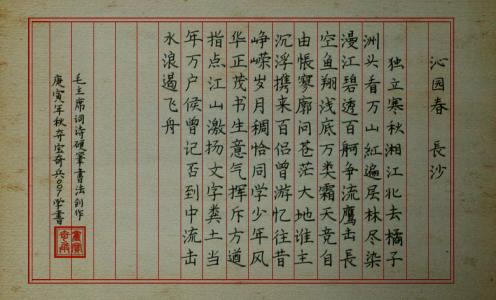 沁园春 長沙
独立寒秋湘江北去橘子
洲头看万山紅遍层林尽染
漫江碧透百舸争流鹰击長
空鱼翔浅底万类霜天竞自
由悵寥廓问苍茫大地谁主
沉浮携来百侣曾游忆往昔
峥嵘岁月稠恰同学少年风
华正茂书生意气挥斥方遒
指点江山激扬文字粪土当
年万户侯曾记否到中流击
水浪遏飞舟
毛主席词诗硬筆書法创作
庚寅年秋弃宝奇兵009学書